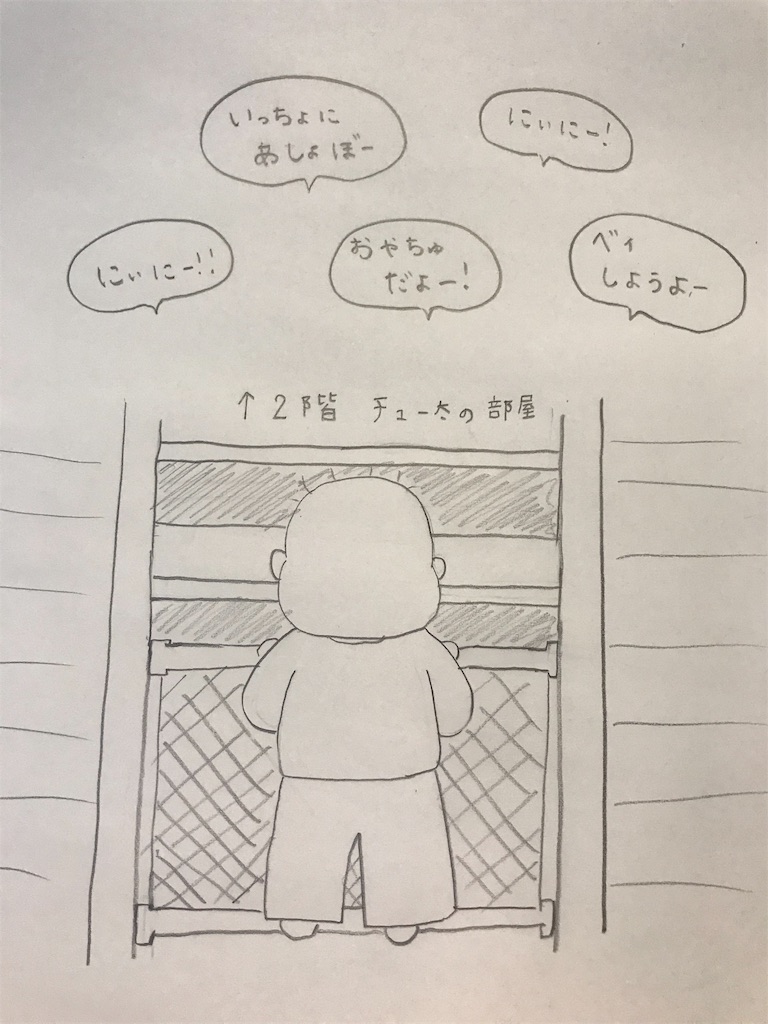 いっちょに
あしょぼー
にぃにー!
にぃにー!!
おやちゅ
だよー!
べィ
しようよー
↑2階 チュー太の部屋